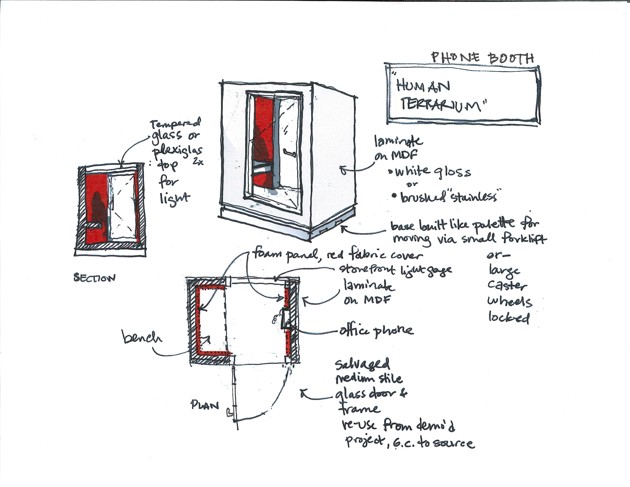 PHONE BOOTH
"HUMAN
TERRARIUM"
Tempered
glass or
plexiglas
top 2x
for
light
laminate
on MDF
• white gloss
or
• brushed "stainless"
base built like palette for
moving via small forklift
-or-
large
caster
wheels
locked
SECTION
foam panel, red fabric cover
storefront light gage
laminate
on MDF
office phone
bench
PLAN
salvaged
medium stile
glass door &
frame
re-use from demo'd
project, G.C. to source